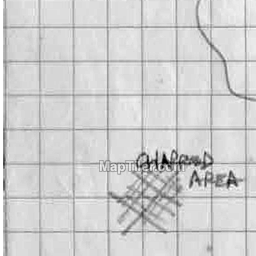 CHARRED
AREA
MapTiler.com